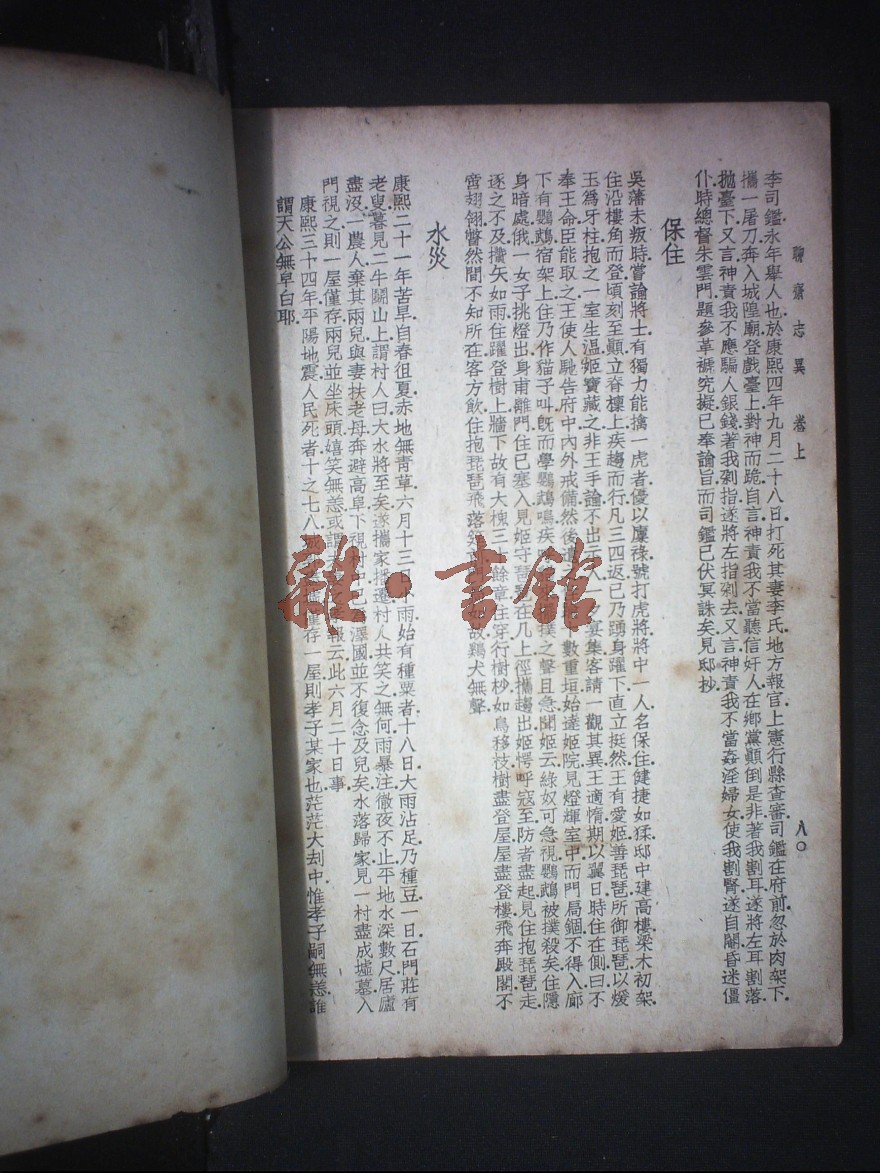 聊齋志異 卷上
八〇
李司鑑永年舉人也於康熙四年九月二十八日打死其妻李氏地方報官上憲行縣查審司鑑在府前忽於肉架下
攜一屠刀奔入城隍廟登戲臺上對神而跪自言神責我不當聽信奸人在鄉黨顛倒是非著我割耳遂將左耳割落
拋臺下又言神責我不應騙人銀錢著我剁指遂將左指剁去又言神責我不當姦淫婦女使我割腎遂自閹昏迷僵
仆時總督朱雲門題參革褫究擬已奉諭旨而司鑑已伏冥誅矣見邸抄
保住
吳藩未叛時嘗諭將士有獨力能擒一虎者優以廩祿號打虎將將中一人名保住健捷如猱邸中建高樓梁木初架
住沿樓角而登頃刻至顛立脊檁上疾趨而行凡三四返已乃踴身躍下直立挺然王有愛姬善琵琶所御琵琶以煖
玉為牙柱抱之一室生温姬寶藏之非王手諭不出示人夕宴集客請一觀其異王適惰期以翼日時住在側曰不
奉王命臣能取之王使人馳告府中內外戒備然後遣數重垣始達姬院見燈輝室中而門扃錮不得入廊
下有鸚鵡宿架上住乃作貓子叫既而學鸚鵡鳴疾撲之聲且急聞姬云綠奴可急視鸚鵡被撲殺矣住隱
身暗處俄一女子挑燈出身甫離門住已塞入見姬守琵琶在几上徑攜趨出姬愕呼寇至防者盡起見住抱琵琶走
逐之不及攢矢如雨住躍登樹上牆下故有大槐三十餘章住穿行樹杪如鳥移枝樹盡登屋屋盡登樓飛奔殿閣不
啻翅翎瞥然間不知所在客方飲住抱琵琶飛落筵故鷄犬無聲
水災
康熙二十一年苦旱自春徂夏赤地無青草六月十三雨始有種粟者十八日大雨沾足乃種豆一日石門莊有
老叟暮見二牛鬭山上謂村人曰大水將至矣遂攜家播遷村人共笑之無何雨暴注徹夜不止平地水深數尺居廬
盡沒一農人棄其兩兒與妻扶老母奔避高阜下視村澤國並不復念及兒矣水落歸家見一村盡成墟墓入
門視之則一屋僅存兩兒並坐床頭嬉笑無恙或謂報云此六月二十日事
康熙三十四年平陽地震人民死者十之七八城僅存一屋則孝子某家也茫茫大刼中惟孝子嗣無恙誰
謂天公無皁白耶
雜·書館